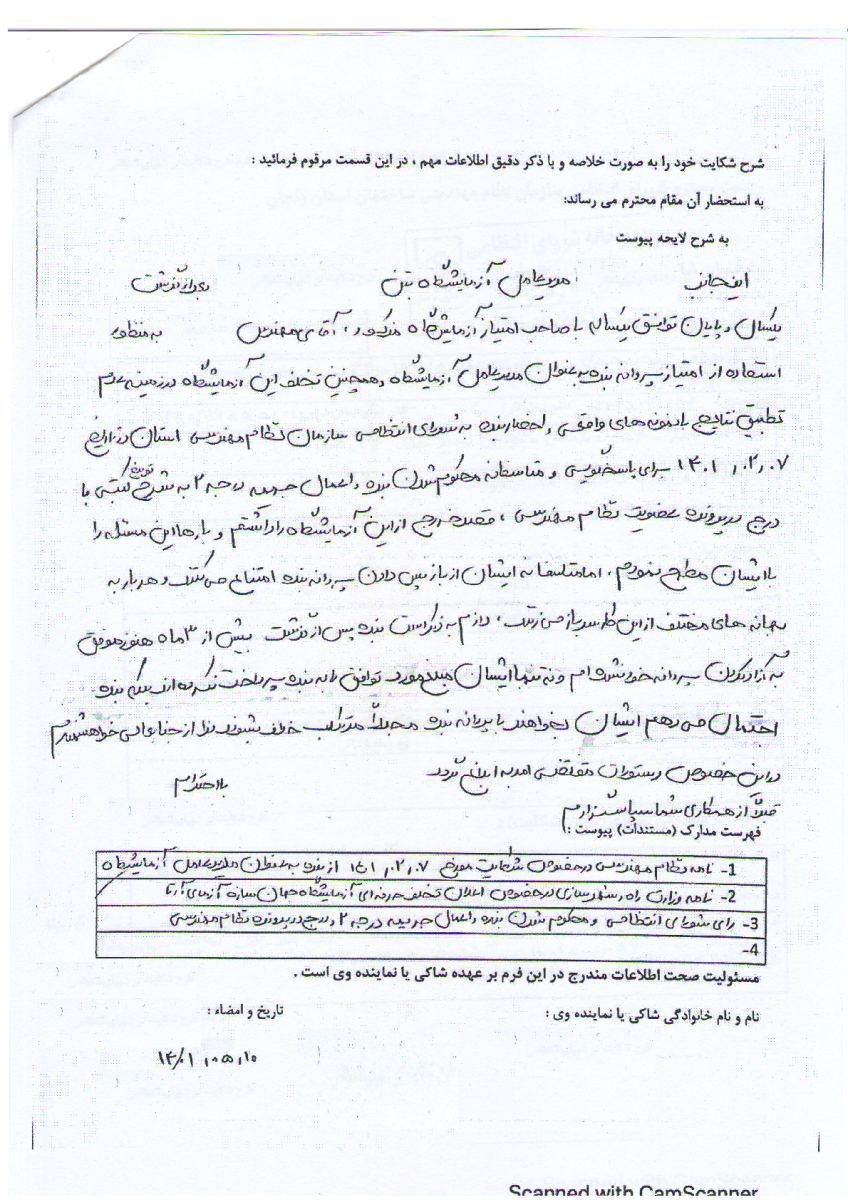 شرح شکایت خود را به صورت خلاصه و با ذکر دقیق اطلاعات مهم ، در این قسمت مرقوم فرمائید :
به استحضار آن مقام محترم می رساند:
به شرح لایحه پیوست
اینجانب مدیرعامل آزمایشگاه بتن بعد از گذشت
یکسال و پایان توافق یکساله با صاحب امتیاز آزمایشگاه مذکور ، آقای مهندس به منظور
استفاده از امتیاز پروانه بنده به عنوان مدیرعامل آزمایشگاه و همچنین تخلف این آزمایشگاه در زمینه عدم
تطبیق نتایج با نمونه های واقعی و احضار بنده به شورای انتظامی سازمان نظام مهندسی استان در تاریخ
۱۴۰۱/۰۲/۰۷ برای پاسخگویی و متاسفانه محکوم شدن بنده و اعمال جریمه درجه ۲ به شرح توبیخ کتبی با
درج در پرونده عضویت نظام مهندسی ، قصد خروج از این آزمایشگاه را داشتم و بارها این مسئله را
با ایشان مطرح نمودم ، اما متاسفانه ایشان از باز پس دادن پروانه بنده امتناع می کنند و هر بار به
بهانه های مختلف از این کار سرباز می زنند ، لازم به ذکر است بنده پس از گذشت بیش از ۳ ماه هنوز موفق
به آزاد کردن پروانه خود نشده ام و نه تنها ایشان مبلغ مورد توافق را به بنده پرداخت نکرده اند بلکه بنده
احتمال می دهم ایشان بخواهند با پروانه بنده مجدداً مرتکب خلاف بشوند لذا از جنابعالی خواهشمندم
در این خصوص دستورات مقتضی امر به ابلاغ گردد
با احترام
قبلاً از همکاری شما سپاسگزارم
فهرست مدارک (مستندات) پیوست :
1- نامه نظام مهندسی در خصوص شکایت مورخ ۱۴۰۱/۰۲/۰۷ از بنده به عنوان مدیرعامل آزمایشگاه
2- نامه وزارت راه و شهرسازی در خصوص اعلان تخلف حرفه ای آزمایشگاه جهان سازه آزمای آرتا
3- رای شورای انتظامی و محکوم شدن بنده و اعمال جریمه درجه ۲ و درج در پرونده نظام مهندسی
4-
مسئولیت صحت اطلاعات مندرج در این فرم بر عهده شاکی یا نماینده وی است .
نام و نام خانوادگی شاکی یا نماینده وی : تاریخ و امضاء :
۱۴۰۱/۰۵/۱۰
Scanned with CamScanner